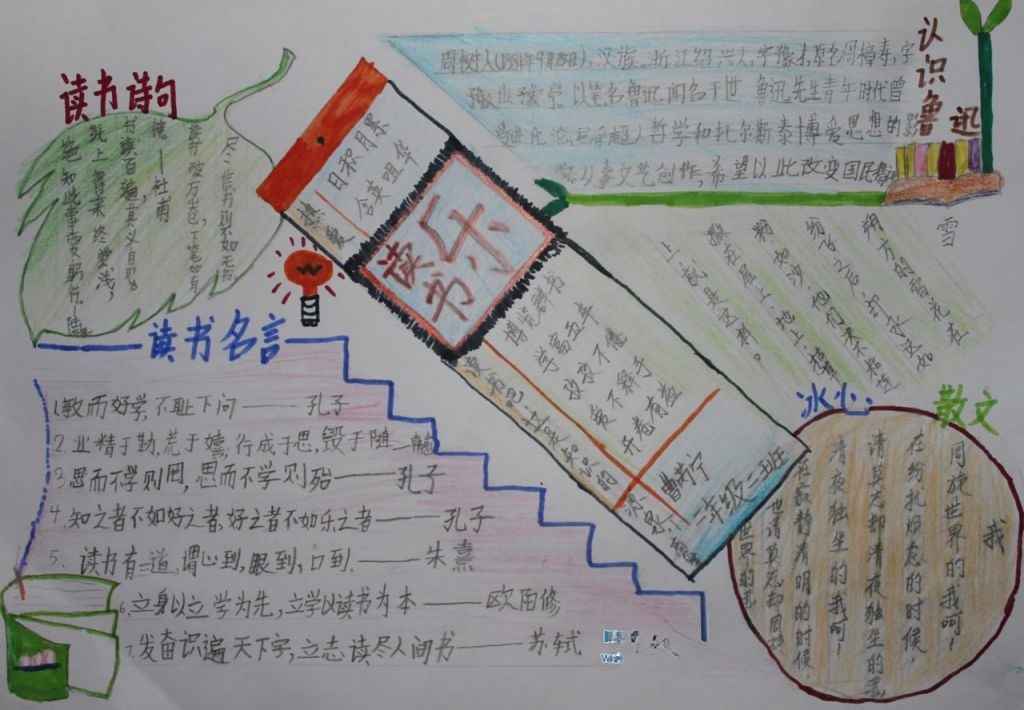 读书诗句
尽信书则不如无书
读书破万卷，下笔如有
神——杜甫
书读百遍其义自见
纸上得来终觉浅，
绝知此事要躬行。—陆
热爱
日积月累
含英咀华
读书乐
博览群书
学富五车
孜孜不倦
爱不释手
开卷有益
读书吧，这是知识的源泉
曹芳宁
二年级二班
认识鲁迅
周树人(1881年9月25日),汉族,浙江绍兴人,字豫才,原名周樟寿,字
豫山、豫亭,以笔名鲁迅闻名于世。鲁迅先生青年时代曾
受进化论、尼采超人哲学和托尔斯泰博爱思想的影
从事文艺创作,希望以此改变国民精神
雪
朔方的雪花在
纷飞之后,却永远如
粉,如沙,他们决不粘连
撒在屋上,地上,枯草
上,就是这样。
读书名言
1.敏而好学,不耻下问——孔子
2.业精于勤,荒于嬉,行成于思,毁于随—韩愈
3.思而不学则罔,思而不学则殆——孔子
4.知之者不如好之者,好之者不如乐之者——孔子
5、读书有三道,谓心到,眼到,口到.——朱熹
6.立身以立学为先,立学以读书为本——欧阳修
7、发奋识遍天下字,立志读尽人间书——苏轼
冰心：
散文
我
周旋世界的我呵！
在纷扰烦恼的时候，
请莫忘却清夜独坐的我！
清夜独坐的我呵！
在寂静清明的时候
也请莫忘却周旋
世界的我